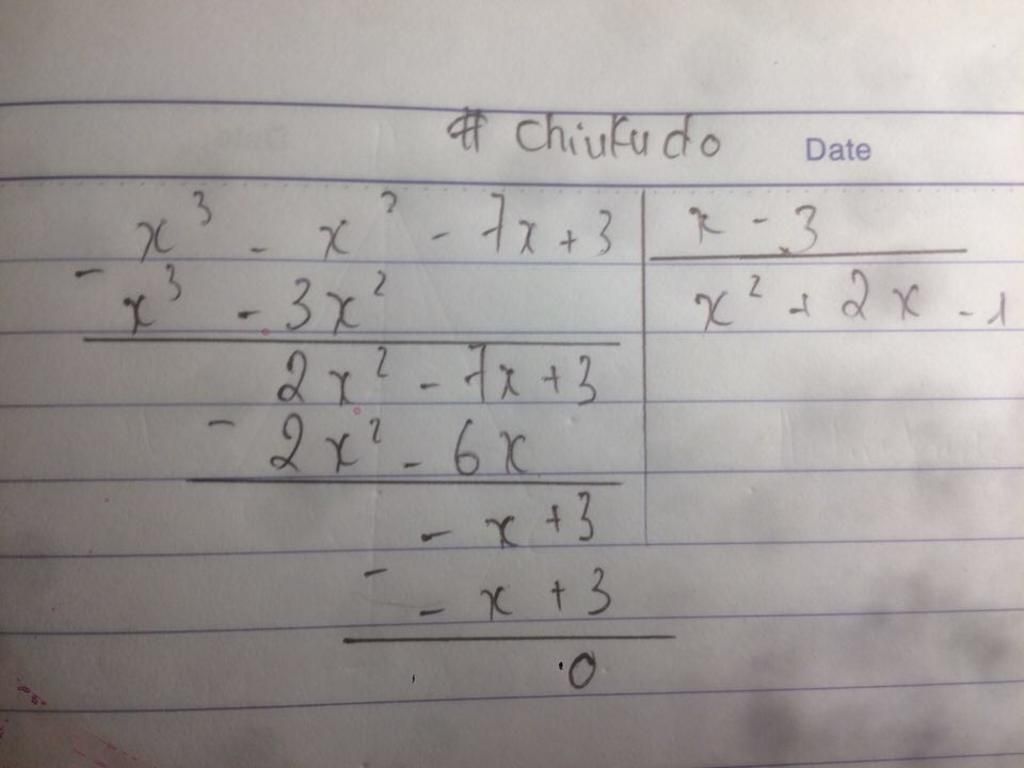 # Chiukudo Date
x³ - x² - 7x + 3 | x - 3
- x³ - 3x² | x² + 2x - 1
2x² - 7x + 3
- 2x² - 6x
- x + 3
- - x + 3
0